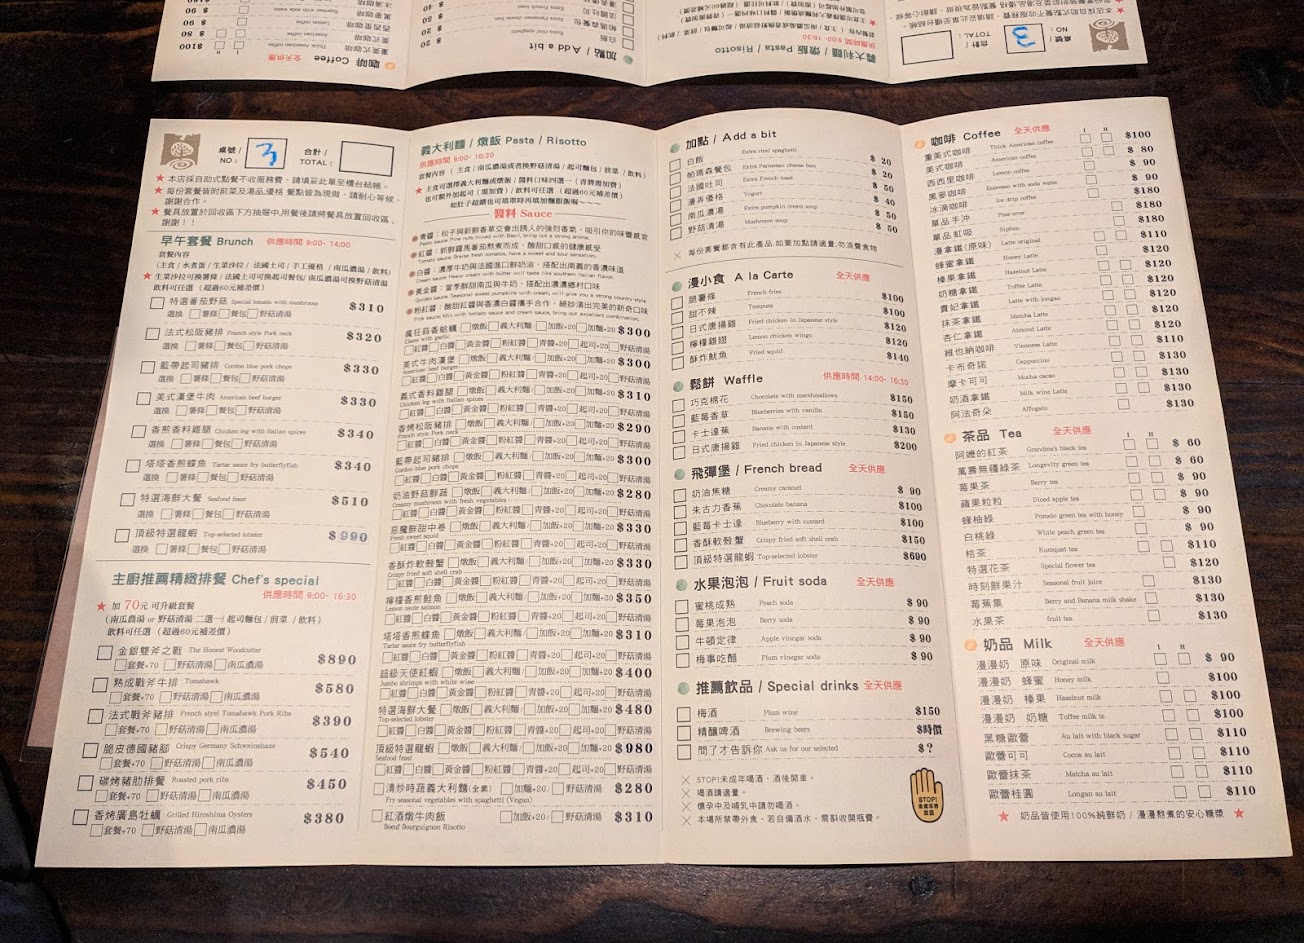 桌號 / NO : 3 合計 / TOTAL :
★ 本店採自助式點餐不收服務費,請填妥此單至櫃台結帳。
★ 每份套餐皆附前菜及湯品,優格 餐點皆為現做,請耐心等候,
謝謝合作。
★ 餐具放置於回收區下方抽屜中,用餐後請將餐具放置回收區,
謝謝!!
早午套餐 Brunch 供應時間 9:00- 14:00
套餐內容
飲料可任選 (超過60元補差價)
特選番茄野菇 Special tomato with mushroom $310
選換 薯條 餐包 野菇清湯
法式松阪豬排 French style Pork neck $320
選換 薯條 餐包 野菇清湯
藍帶起司豬排 Cordon blue pork chops $330
選換 薯條 餐包 野菇清湯
美式漢堡牛肉 American beef burger $330
選換 薯條 餐包 野菇清湯
香煎香料雞腿 Chicken leg with Italian spices $340
選換 薯條 餐包 野菇清湯
塔塔香煎蝶魚 Tartar sauce fry butterflyfish $340
選換 薯條 餐包 野菇清湯
特選海鮮大餐 Seafood feast $510
選換 薯條 餐包 野菇清湯
頂級特選龍蝦 Top-selected lobster $990
選換 薯條 餐包 野菇清湯
主廚推薦精緻排餐 Chef's special
供應時間 9:00- 16:30
★ 加 70元 可升級套餐
(南瓜濃湯 or 野菇清湯 二選一/ 起司麵包 / 前菜 / 飲料)
飲料可任選 (超過60元補差價)
金銀雙斧之戰 The Honest Woodcutter $890
套餐+70 野菇清湯 南瓜濃湯
熟成戰斧牛排 Tomahawk $580
套餐+70 野菇清湯 南瓜濃湯
法式戰斧豬排 French styel Tomahawk Pork Ribs $390
套餐+70 野菇清湯 南瓜濃湯
脆皮德國豬腳 Crispy Germany Schweinshaxe $540
套餐+70 野菇清湯 南瓜濃湯
碳烤豬肋排餐 Roasted pork ribs $450
套餐+70 野菇清湯 南瓜濃湯
香烤廣島牡蠣 Grilled Hiroshima Oysters $380
套餐+70 野菇清湯 南瓜濃湯
義大利麵 / 燉飯 Pasta / Risotto
供應時間 9:00- 16:30
醬料 Sauce
青醬:松子與新鮮香草交會出誘人的強烈香氣,吸引你的味蕾感官
紅醬:新鮮羅馬番茄熬煮而成,酸甜口感的健康感受
白醬:濃厚牛奶與法國進口鮮奶油,搭配出南義的香濃味道
黃金醬:當季鮮甜南瓜與牛奶,搭配出濃濃鄉村口味
粉紅醬:酸甜紅醬與香濃白醬攜手合作,絕妙演出完美的新奇口味
瘋狂蒜香蛤蠣 燉飯 義大利麵 加飯+20 加麵+20 $300
Clams with garlic
紅醬 白醬 黃金醬 粉紅醬 青醬+20 起司+20 野菇清湯
美式牛肉漢堡 燉飯 義大利麵 加飯+20 加麵+20 $300
American beef burger
紅醬 白醬 黃金醬 粉紅醬 青醬+20 起司+20 野菇清湯
義式香料雞腿 燉飯 義大利麵 加飯+20 加麵+20 $310
Chicken leg with Italian spices
紅醬 白醬 黃金醬 粉紅醬 青醬+20 起司+20 野菇清湯
香烤松阪豬排 燉飯 義大利麵 加飯+20 加麵+20 $290
French style Pork neck
紅醬 白醬 黃金醬 粉紅醬 青醬+20 起司+20 野菇清湯
藍帶起司豬排 燉飯 義大利麵 加飯+20 加麵+20 $300
Cordon blue pork chops
紅醬 白醬 黃金醬 粉紅醬 青醬+20 起司+20 野菇清湯
奶油野菇鮮蔬 燉飯 義大利麵 加飯+20 加麵+20 $280
Creamy mushroom with fresh vegetables
紅醬 白醬 黃金醬 粉紅醬 青醬+20 起司+20 野菇清湯
惡魔鮮甜中卷 燉飯 義大利麵 加飯+20 加麵+20 $330
Fresh sweet squid
紅醬 白醬 黃金醬 粉紅醬 青醬+20 起司+20 野菇清湯
香酥炸軟殼蟹 燉飯 義大利麵 加飯+20 加麵+20 $330
Crispy fried soft shell crab
紅醬 白醬 黃金醬 粉紅醬 青醬+20 起司+20 野菇清湯
檸檬香煎鮭魚 燉飯 義大利麵 加飯+20 加麵+20 $350
Lemon saute salmon
紅醬 白醬 黃金醬 粉紅醬 青醬+20 起司+20 野菇清湯
塔塔香煎蝶魚 燉飯 義大利麵 加飯+20 加麵+20 $310
Tartar sauce fry butterflyfish
紅醬 白醬 黃金醬 粉紅醬 青醬+20 起司+20 野菇清湯
超級天使紅蝦 燉飯 義大利麵 加飯+20 加麵+20 $400
Jumbo shrimps with white wine
紅醬 白醬 黃金醬 粉紅醬 青醬+20 起司+20 野菇清湯
特選海鮮大餐 燉飯 義大利麵 加飯+20 加麵+20 $480
Top-selected lobster
紅醬 白醬 黃金醬 粉紅醬 青醬+20 起司+20 野菇清湯
頂級特選龍蝦 燉飯 義大利麵 加飯+20 加麵+20 $980
Seafood feast
紅醬 白醬 黃金醬 粉紅醬 青醬+20 起司+20 野菇清湯
清炒時蔬義大利麵(全素) 加麵+20 野菇清湯 $280
Fry seasonal vegetables with spaghetti (Vegan)
紅酒燉牛肉飯 加飯+20 野菇清湯 $310
Bœuf Bourguignon Risotto
加點 / Add a bit
白飯 Extra rise/ spaghetti $ 20
帕瑪森餐包 Extra Parmesan cheese bun $ 20
法國吐司 Extra French toast $ 50
漫弄優格 Yogurt $ 40
南瓜濃湯 Extra pumpkin cream soup $ 50
野菇清湯 Mushroom soup $ 50
× 每份套餐都含有此產品,如要加點請適量,勿浪費食物
漫小食 A la Carte 全天供應
脆薯條 French fries $100
甜不辣 Tempura $100
日式唐揚雞 Fried chicken in Japanese style $120
檸檬雞翅 Lemon chicken wings $120
酥炸魷魚 Fried squid $140
鬆餅 Waffle 供應時間 14:00- 16:30
巧克棉花 Chocolate with marshmallows $150
藍莓香草 Blueberries with vanilla $150
卡士達蕉 Banana with custard $130
日式唐揚雞 Fried chicken in Japanese style $200
飛彈堡 / French bread 全天供應
奶油焦糖 Creamy caramel $ 90
朱古力香蕉 Chocolate banana $100
藍莓卡士達 Blueberry with custard $100
香酥軟殼蟹 Crispy fried soft shell crab $150
頂級特選龍蝦 Top-selected lobster $690
水果泡泡 / Fruit soda 全天供應
蜜桃成熟 Peach soda $ 90
莓果泡泡 Berry soda $ 90
牛頓定律 Apple vinegar soda $ 90
梅事吃醋 Plum vinegar soda $ 90
推薦飲品 / Special drinks 全天供應
梅酒 Plum wine $150
精釀啤酒 Brewing beers $時價
問了才告訴你 Ask us for our selected $ ?
× STOP!未成年喝酒,酒後開車。
× 喝酒請適量。
× 懷孕中及哺乳中請勿喝酒。
× 本場所禁帶外食,若自備酒水,需酌收開瓶費。
STOP!
咖啡 Coffee 全天供應 I H
重美式咖啡 Thick American coffee $100
美式咖啡 American coffee $ 80
西西里咖啡 Lemon coffee $ 90
黑麥咖啡 Espresso with soda water $ 90
冰滴咖啡 Ice drip coffee $180
單品手沖 Pour-over $180
單品虹吸 Siphon $180
漫拿鐵(原味) Latte original $110
蜂蜜拿鐵 Honey Latte $120
榛果拿鐵 Hazelnut Latte $120
奶糖拿鐵 Toffee Latte $120
貴妃拿鐵 Latte with longan $120
抹茶拿鐵 Matcha Latte $120
杏仁拿鐵 Almond Latte $120
維也納咖啡 Viennese Latte $110
卡布奇諾 Cappuccino $130
摩卡可可 Mocha cacao $130
奶酒拿鐵 Milk wine Latte $130
阿法奇朵 Affogato $130
茶品 Tea 全天供應 I H
阿嬤的紅茶 Grandma's black tea $ 60
萬壽無疆綠茶 Longevity green tea $ 60
莓果茶 Berry tea $ 90
蘋果粒粒 Diced apple tea $ 90
蜂柚綠 Pomelo green tea with honey $ 90
白桃綠 White peach green tea $ 90
桔茶 Kumquat tea $110
特選花茶 Special flower tea $120
時刻鮮果汁 Seasonal fruit juice $130
莓蕉集 Berry and Banana milk shake $130
水果茶 fruit tea $130
奶品 Milk 全天供應 I H
漫漫奶 原味 Original milk $ 90
漫漫奶 蜂蜜 Honey milk $100
漫漫奶 榛果 Hazelnut milk $100
漫漫奶 奶糖 Toffee milk te $100
黑糖歐蕾 Au lait with black sugar $110
歐蕾可可 Cocoa au lait $110
歐蕾抹茶 Matcha au lait $110
歐蕾桂圓 Longan au lait $110
★ 奶品皆使用100%純鮮奶 / 漫漫熬煮的安心糖漿 ★